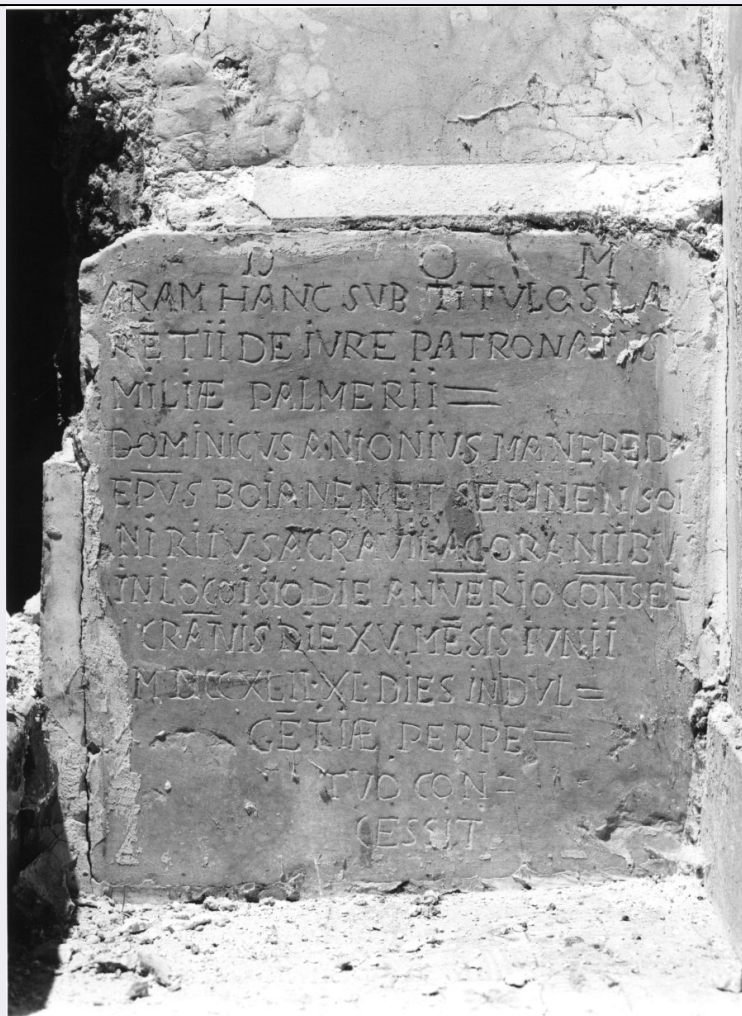 D O M
ARAM HANC SVB TITVLO S LAV
RETII DE IVRE PATRONATVS F
MILIÆ PALMERII =
DOMINICVS ANTONIVS MANFRED
EPVS BOIANEN ET SEPINEN SOL
NI RITV SACRAVIT AC ORANTIBV
IN LOCO ISTO DIE ANVERIO CONSE =
CRANIS DIE XV MESIS IVNII
MDCCXLII XL DIES INDVL =
GETIÆ PERPE =
TVO CON =
CESSIT